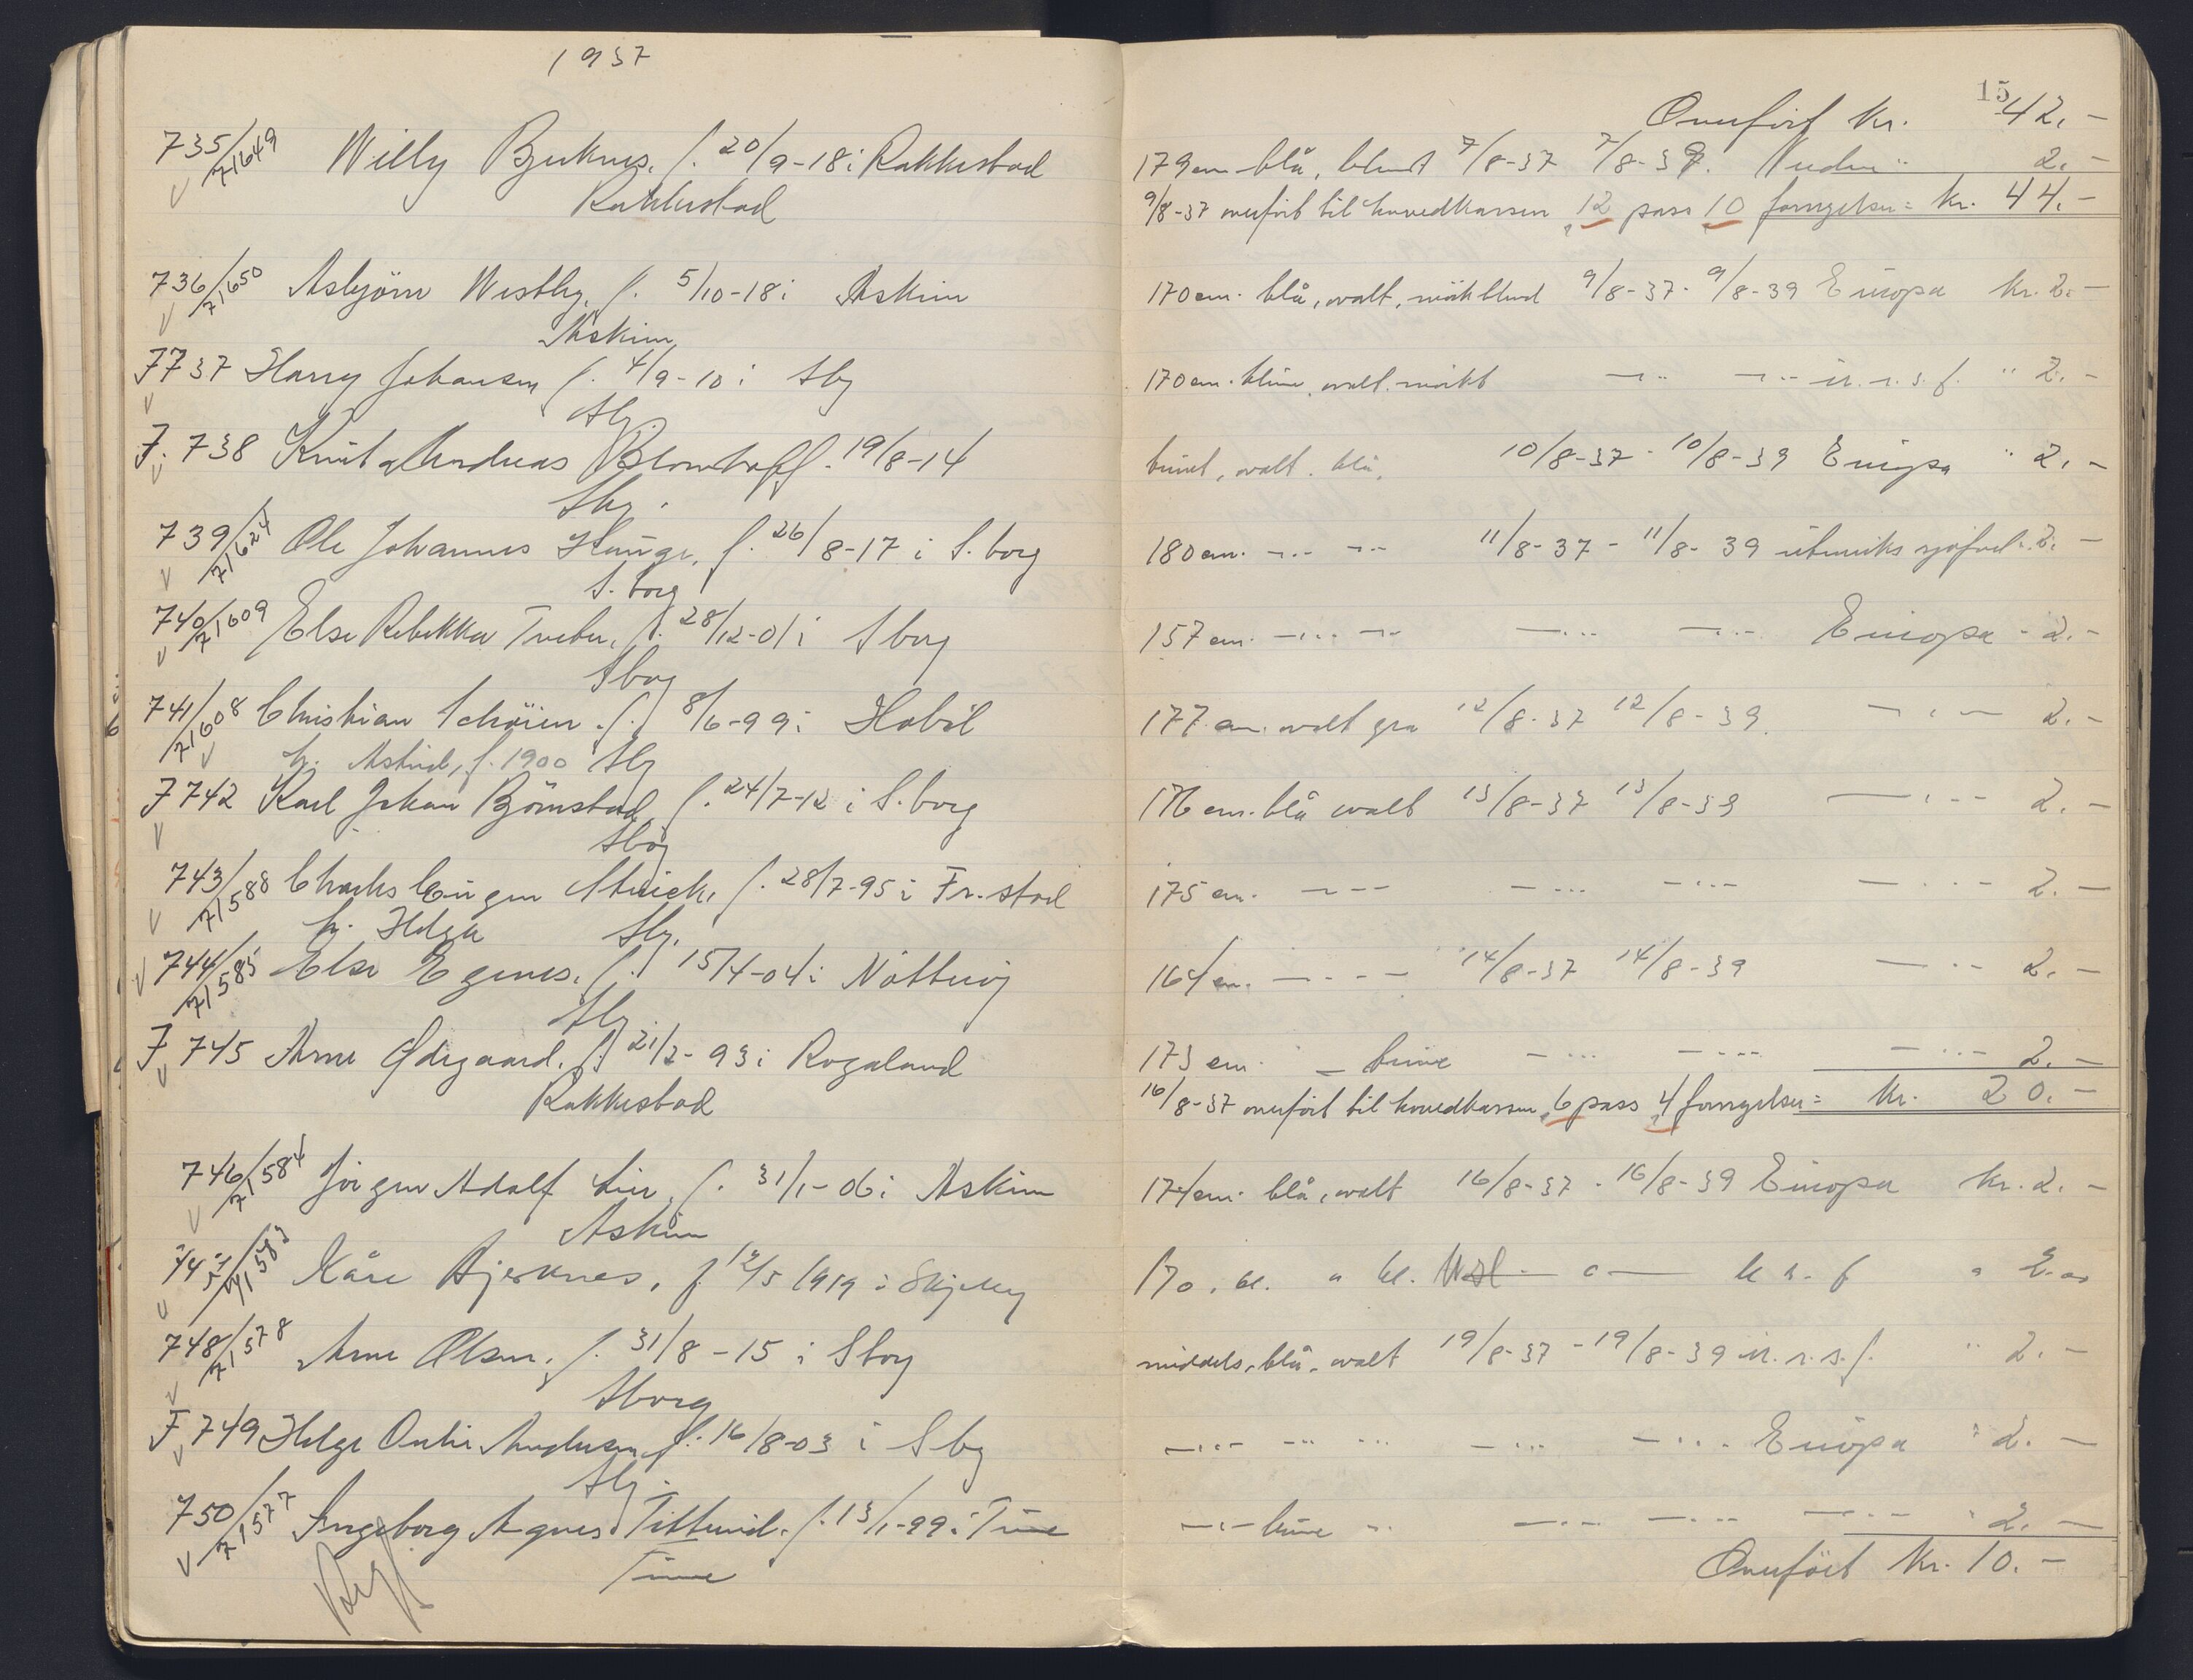 1937
735/71649 Willy Bjerknes, f. 20/9-18 i Rakkestad
Rakkestad
736/71650 Asbjörn Westby, f. 5/10-18 i Askim
Askim
F737 Harry Johansen f. 4/9-10 i Sbg
Sbg.
F. 738 Knut Andreas Blomhoff. 19/8-14
Sbg.
739/71624 Ole Johannes Hauge, f. 26/8-17 i S.borg
S.borg
740/71609 Else Rebekka Tveter, f. 28/12-01 i Sborg
Sborg
741/71608 Christian Schöien. f. 8/6-99 i Hoböl
h. Astrid, f. 1900 Sbg
F742 Karl Johan Björnstad, f. 24/7-12 i S.borg
Sborg
743/71588 Charles Eugen f. 28/7-95 i Fr.stad
h. Helga Sbg.
744/71585 Else Egenes. f. 15/4-04 i Nötteröy
Sbg
F. 745 Arne Ødegaard. f. 21/2-93 i Rogaland
Rakkestad
746/71584 Jörgen Adolf Lier, f. 31/1-06 i Askim
Askim
747/71583 Kåre Bjerknes, f. 12/5 1919 i Skjeberg
748/71578 Arne Olsen. f. 31/8-15 i Sborg
Sborg
F 749 Helge Andersen f. 16/8-03 i Sbg
Sbg.
750/71577 Ingeborg Agnes f. 13/1-99 i Tune
Tune
15
Overfört kr. 42.-
179 cm blå, blond 7/8-37 7/8-39. Verden " 2.-
9/8-37 overfört til hovedkassen 12 pass 10 fornyelser = kr. 44.-
170 cm. blå, ovalt, mörkblond 9/8-37 - 9/8-39 Europa kr. 2.-
170 cm. brune, ovalt. mörkt —"— —"— u.r.s.f. " 2.-
brunt, ovalt. blå, 10/8-37 - 10/8-39 Europa " 2.-
180 cm. —"— —"— 11/8-37 - 11/8-39 utenriks sjöfart " 2.-
157 cm. —"— —"— —"— —"— Europa " 2.-
177 cm. ovalt grå 12/8-37 12/8-39. —"— 2.-
176 cm. blå ovalt 13/8-37 13/8-39 —"— 2.-
175 cm. —"— —"— —"— —"— 2.-
164 cm. —"— 14/8-37 14/8-39 —"— 2.-
173 cm. — brune —"— —"— —"— 2.-
16/8-37 overfört til hovedkassen 6 pass 4 fornyelser = kr. 20.-
174 cm. blå, ovalt 16/8-37 - 16/8-39 Europa kr. 2.-
170. bl. " bl. —"— u r. f " 2.00
middels, blå, ovalt 19/8-37 - 19/8-39 u.r.s.f. " 2.-
—"— —"— —"— —"— —"— Europa " 2.-
—"— brune " —"— —"— —"— " 2.-
Overfört kr. 10.-